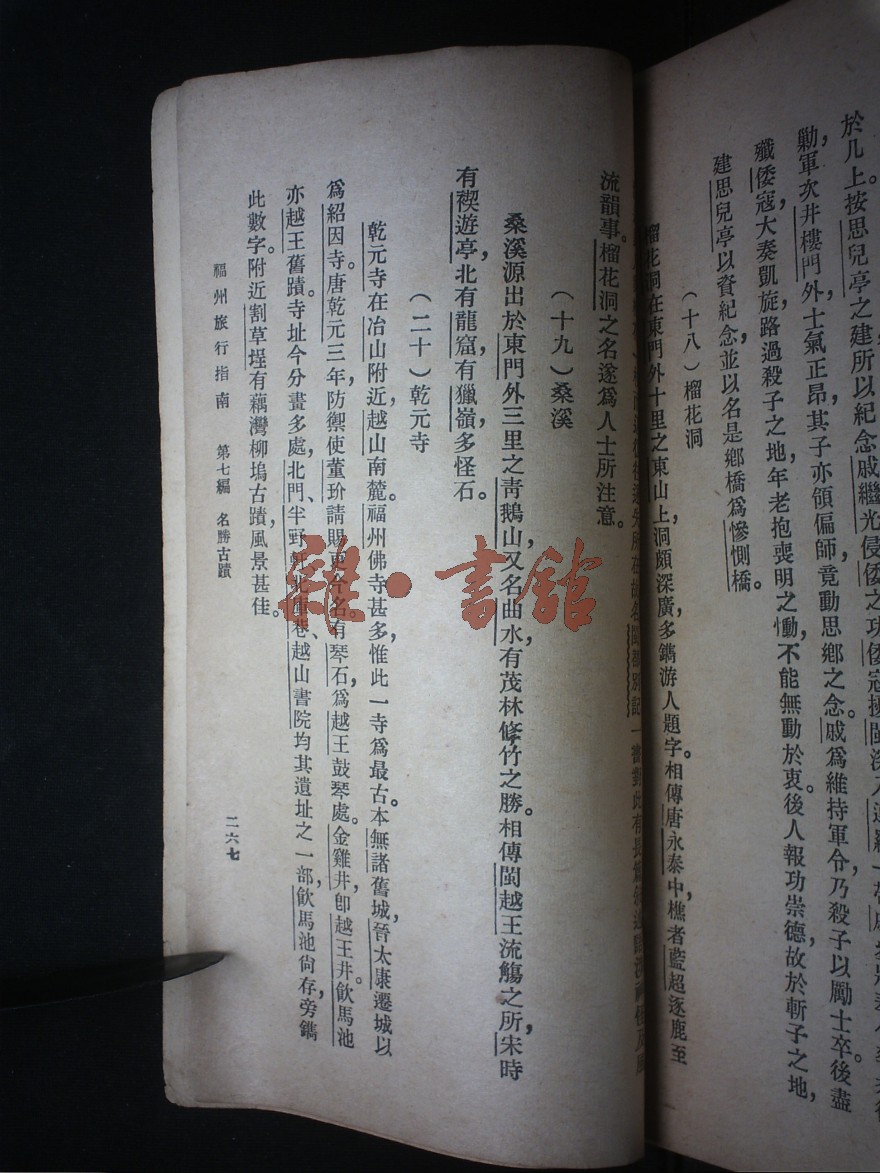 於几上按思兒亭之建所以紀念戚繼光侵倭之功倭寇擾閩深入連羅一帶
勦軍次井樓門外士氣正昂其子亦領偏師竟動思鄉之念。戚爲維持軍令乃殺子以勵士卒。後盡
殲倭寇，大奏凱旋路過殺子之地，年老抱喪明之慟，不能無動於衷。後人報功崇德故於斬子之地，
建思兒亭以資紀念並以名是鄉橋爲慘惻橋。
（十八）榴花洞
榴花洞在東門外十里之東山上，洞頗深廣，多鐫游人題字。相傳唐永泰中樵者藍超逐鹿至
閩都別記一書對此有長篇
流韻事。榴花洞之名遂爲人士所注意。
（十九）桑溪
桑溪源出於東門外三里之靑鵝山，又名曲水，有茂林修竹之勝。相傳閩越王流觴之所，宋時
有禊遊亭，北有龍窟，有獵嶺，多怪石。
（二十）乾元寺
乾元寺在冶山附近，越山南麓。福州佛寺甚多，惟此一寺爲最古。本無諸舊城，晉太康遷城以
爲紹因寺。唐乾元三年，防禦使董玠請賜更今名。有琴石，爲越王鼓琴處。金雞井卽越王井。飮馬池
亦越王舊蹟。寺址今分畫多處，北門、半野軒、北庫巷、越山書院均其遺址之一部，飮馬池尙存，旁鐫
此數字。附近割草埕有藕灣柳塢古蹟，風景甚佳。
福州旅行指南　第七編　名勝古蹟
二六七
雜·書館